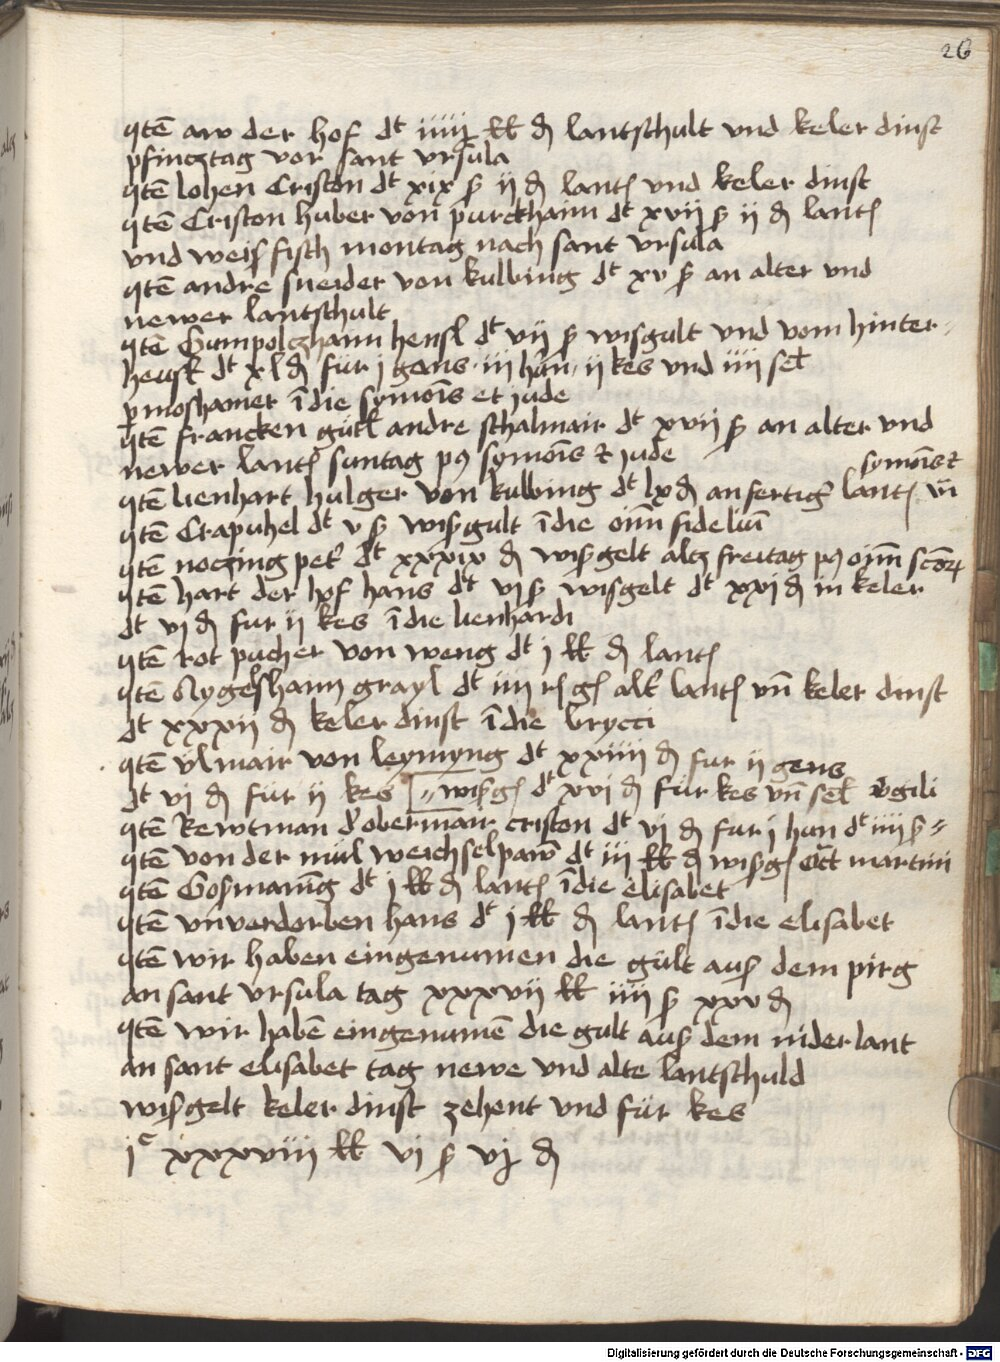 26
Itē aw der hof dt iiiij ℔ ₰ lantschult vnd keler dinst
pfincztag vor sant vrsula
Itē lohen Criston dt xix ß ij ₰ lant͡ vnd keler dinst
Itē Criston huber von purckhaim dt xvij ß ij ₰ lant͡
vnd weisfisch montag nach sant vrsula
Itē andre sneider von kulbing dt xv ß an alter vnd
newer lantschult
Itē Gumpolczhann hensl dt vij ß wisgult vnd vom hinter-
heusl dt xl ₰ für j gens iij hün ij kes vnd iiij sel
p moshamer ī die symoīs et jude
Itē francken gütl andre schalmair dt xvij ß an alter vnd
newer lant͡ suntag pꝯ symoīs et jude
symoīs et
Itē lienhart hulger von kulbing dt lx ₰ an fertig lant͡
Itē Crapuhel dt v ß wisgult ī die oīm fideliū
Itē noczing pet dt xxxix ₰ wisgelt alcz freitag pꝯ oīm scōꝝ
Itē hart der hof hans dt vj ß wisgelt dt xxj ₰ in keler
dt vj ₰ fur ij kes ī die lienhardi
Itē rot pucher von weng dt j ℔ ₰ lant͡
Itē grayl dt iiij alt lant͡ vn̄ keler dinst
dt xxxij ₰ keler dinst ī die brycci
Itē vlmair von leymyng dt xxiiii ₰ fur ij gens
dt vj ₰ für ij kes wisg͡ dt xvj ₰ für kes vn̄ sel vigili
Itē Rewtman d obermair criston dt vj ₰ fur j hun dt iiij ß
Itē von der mül weichselpawm dt iij ℔ ₰ wisg͡ oct martini
Itē Gosmanīg dt j ℔ ₰ lant͡ ī die elisabet
Itē vnuerdorben hans dt j ℔ ₰ lant͡ ī die elisabet
Itē wir haben eingenumen die gült aus dem pirg
an sant vrsula tag xxxvij ℔ iiij ß xxv ₰
Itē wir habē eingenumē die gult aus dem niderlant
an sant elisabet tag newe vnd alte lantschuld
wisgelt keler dinst zehent vnd für kes
jc xxxviij ℔ vj ß vj ₰
Digitalisierung gefördert durch die Deutsche Forschungsgemeinschaft - DFG